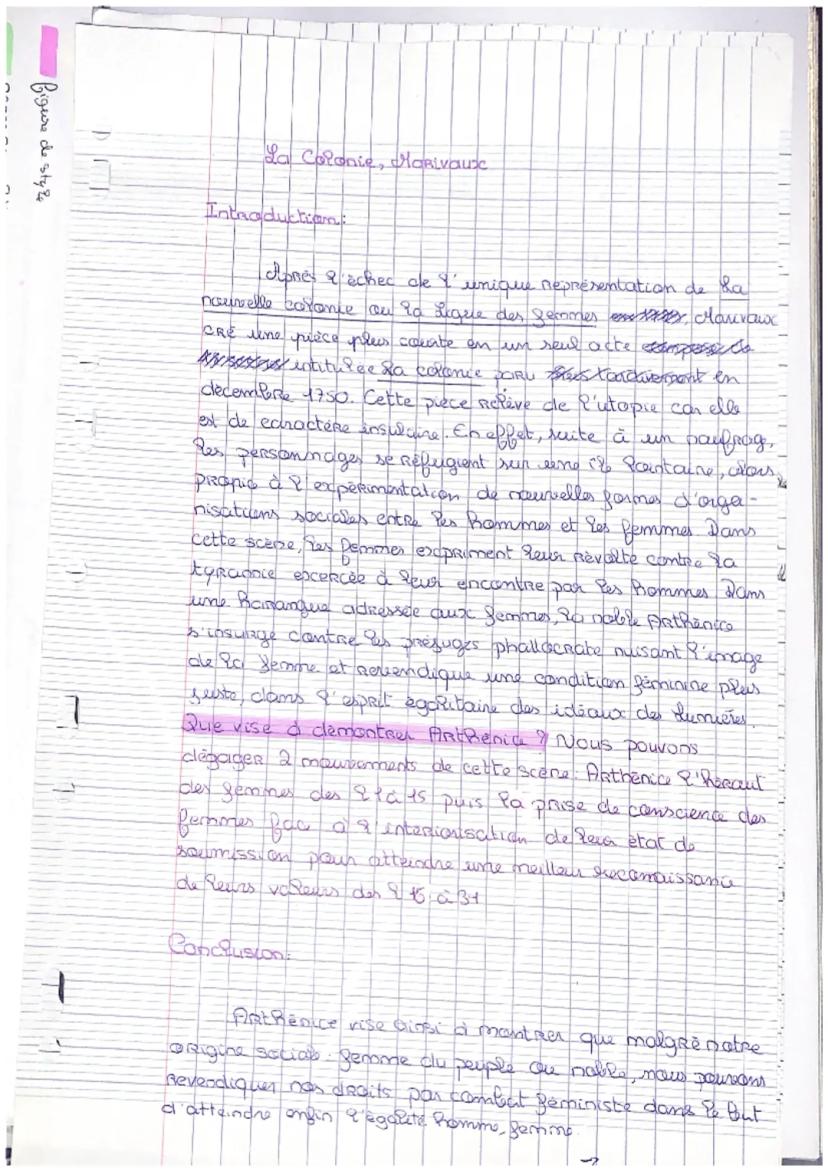 Figure de style
La Colonie, Marivaux
Introduction:
Après l'échec de l'unique représentation de La
nouvelle colonie ou la ligue des femmes, Marivaux
cré une pièce plus courte en un seul acte
intitulée La colonie paru en
décembre 1750. Cette pièce relève de l'utopie car elle
est de caractère insulaire. En effet, suite à un naufrag,
les personnages se réfugient sur une île lointaine, alors
propice à l'expérimentation de nouvelles formes d'orga-
nisations sociales entre les hommes et les femmes. Dans
cette scène, les femmes expriment leur révolte contre la
tyrannie excercée à leur encontre par les hommes. Dans
une harangue adressée aux femmes, la noble Arthénice
s'insurge contre les préjugés phallocrate nuisant l'image
de la femme et revendique une condition féminine plus
juste, dans l'esprit égalitaire des idéaux des Lumières.
Que vise à démontrer Arthénice ? Nous pouvons
dégager 2 mouvements de cette scène: Arthénice l'héraut
des femmes des l 1 à 15 puis la prise de conscience des
femmes fac à l'interiorisation de leur état de
soumission pour atteindre une meilleur reconnaissance
de leurs valeurs des l 15 à 31
Conclusion:
Arthénice vise ainsi à montrer que malgré notre
origine sociale: femme du peuple ou noble, nous pouvons
revendiquer nos droits par combat féministe dans le but
d'atteindre enfin l'égalité homme, femme.
→